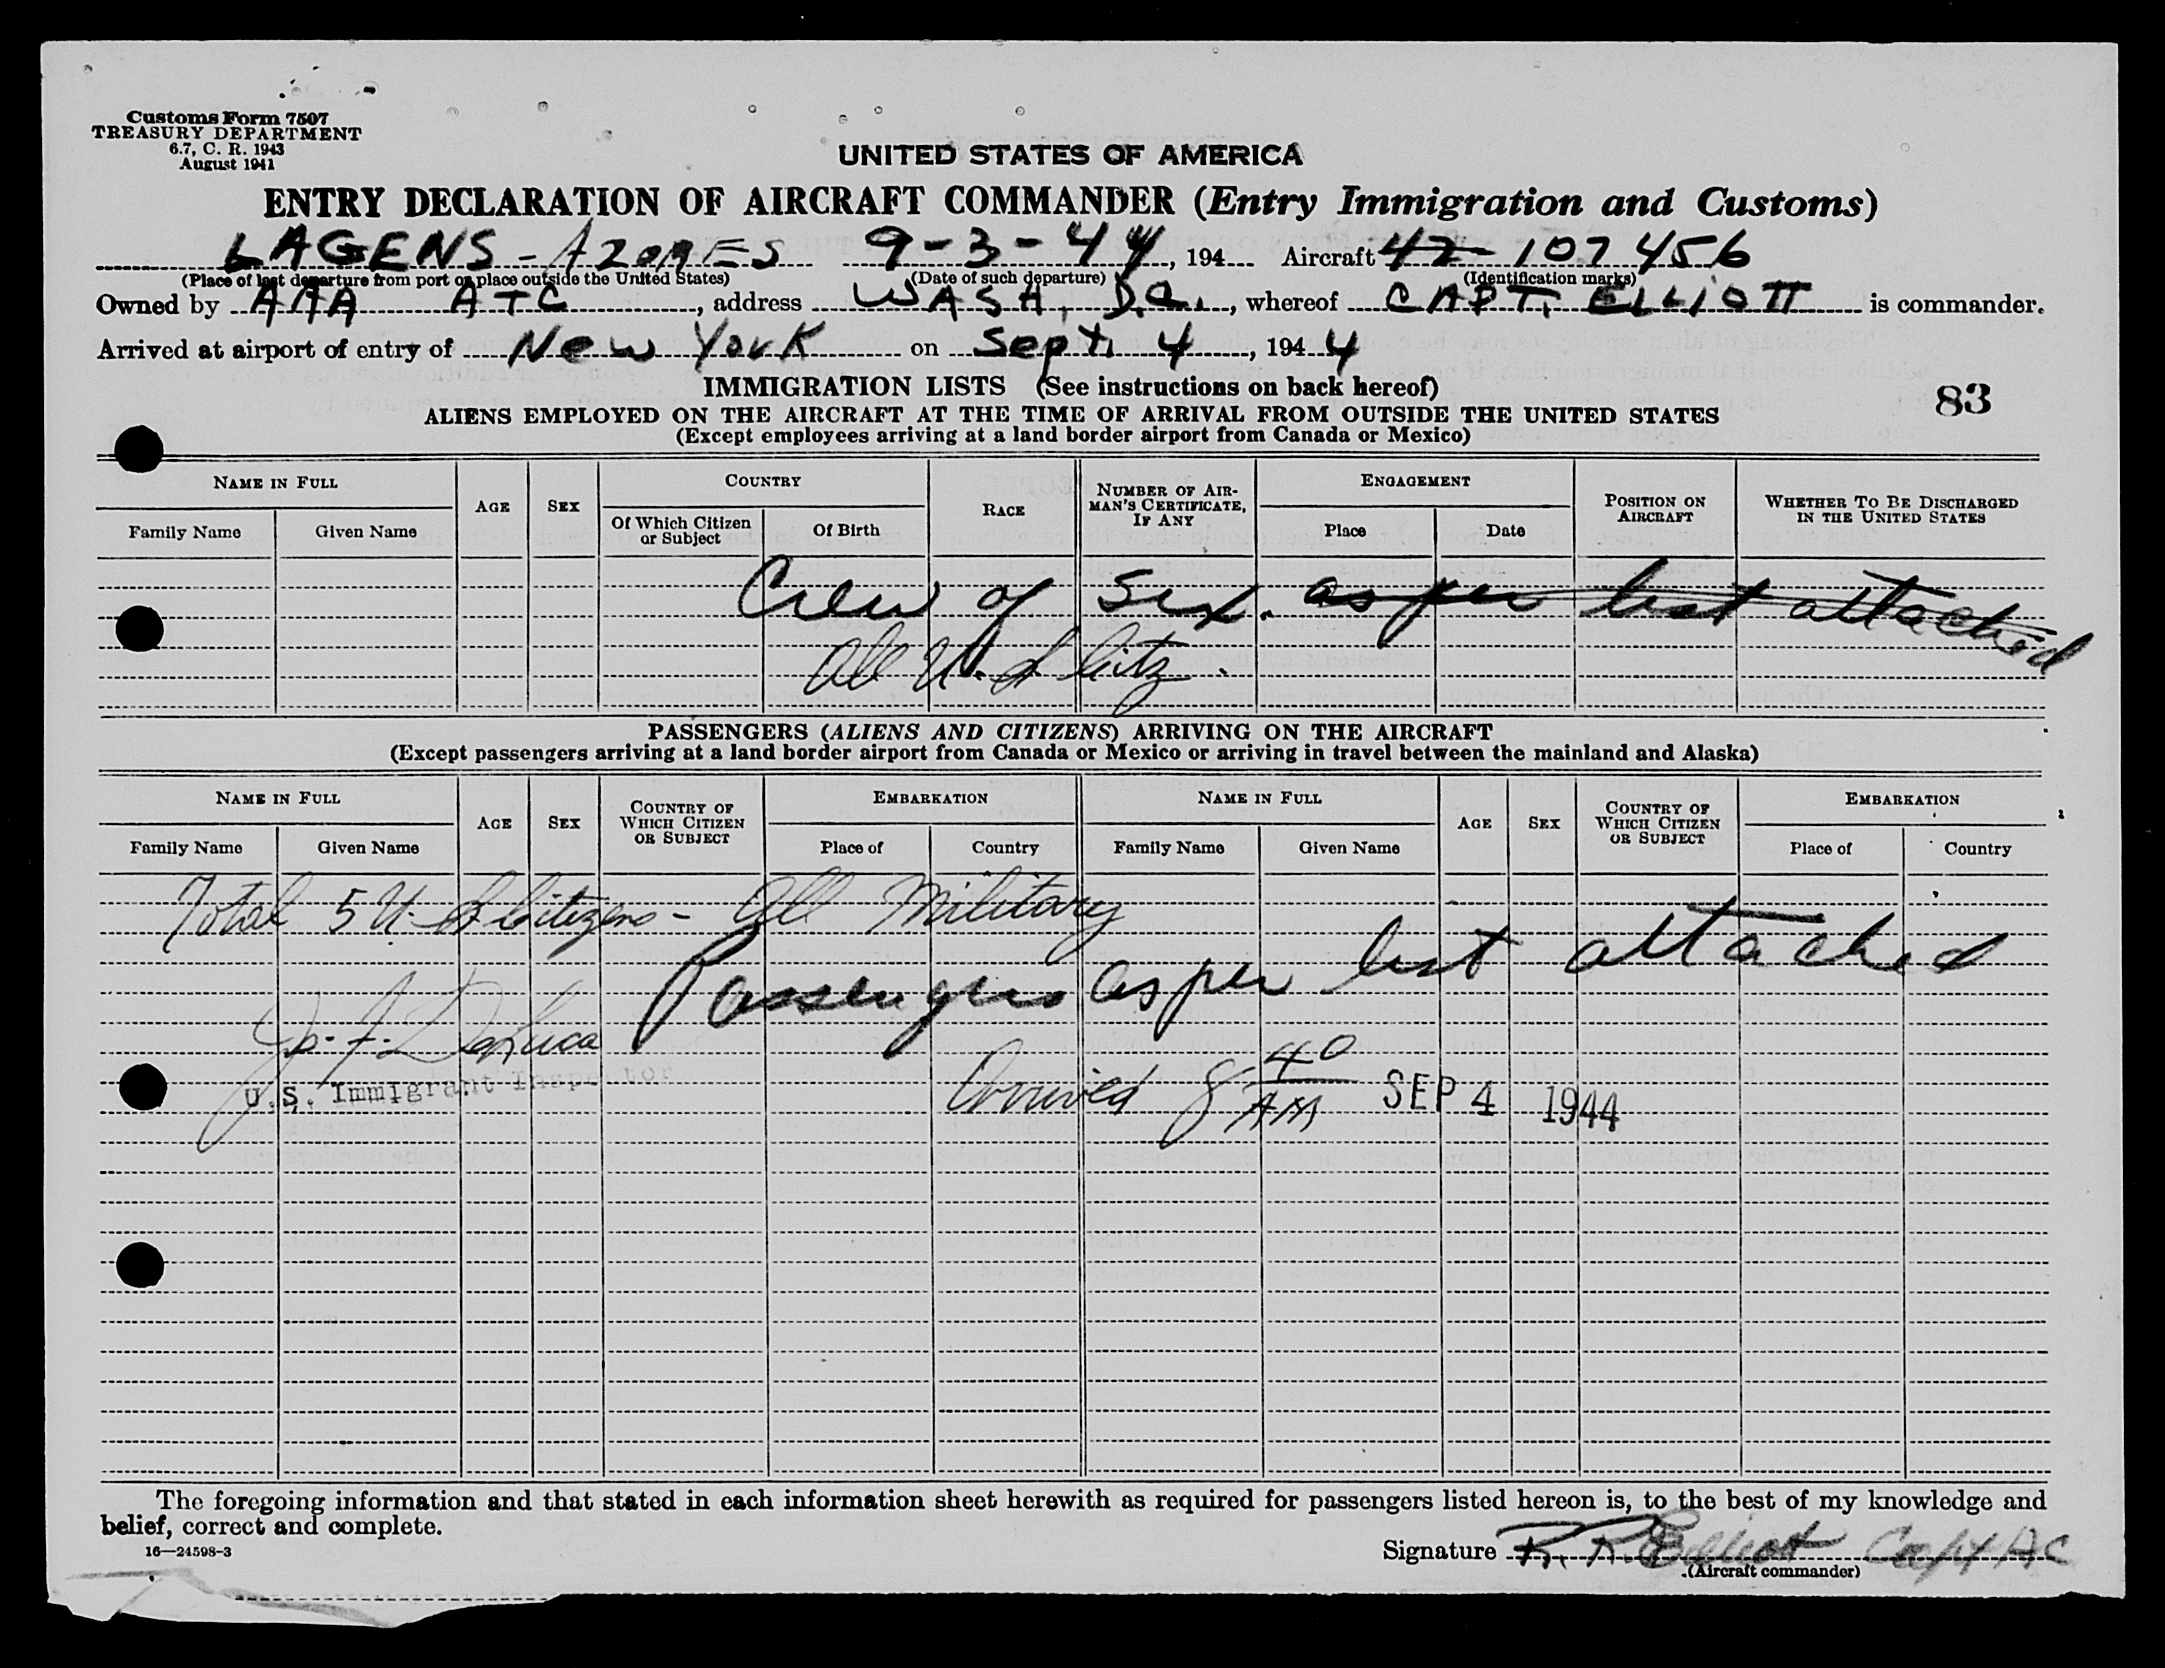 Customs Form 7507
TREASURY DEPARTMENT
6.7, C. R. 1943
August 1941
UNITED STATES OF AMERICA
ENTRY DECLARATION OF AIRCRAFT COMMANDER (Entry Immigration and Customs)
LAGENS - AZORES 9-3-44, 194 Aircraft 42-107456
(Place of last departure from port or place outside the United States) (Date of such departure) (Identification marks)
Owned by AAA ATC, address WASH, D.C., whereof CAPT. ELLIOTT is commander.
Arrived at airport of entry of New York on Sept. 4, 1944
IMMIGRATION LISTS (See instructions on back hereof)
83
ALIENS EMPLOYED ON THE AIRCRAFT AT THE TIME OF ARRIVAL FROM OUTSIDE THE UNITED STATES
(Except employees arriving at a land border airport from Canada or Mexico)
NAME IN FULL AGE SEX COUNTRY RACE NUMBER OF AIRMAN'S CERTIFICATE, IF ANY ENGAGEMENT POSITION ON AIRCRAFT WHETHER TO BE DISCHARGED IN THE UNITED STATES
Family Name Given Name Of Which Citizen or Subject Of Birth Place Date
Crew of Six. as per list attached
All U.S. Citz.
PASSENGERS (ALIENS AND CITIZENS) ARRIVING ON THE AIRCRAFT
(Except passengers arriving at a land border airport from Canada or Mexico or arriving in travel between the mainland and Alaska)
NAME IN FULL AGE SEX COUNTRY OF WHICH CITIZEN OR SUBJECT EMBARKATION NAME IN FULL AGE SEX COUNTRY OF WHICH CITIZEN OR SUBJECT EMBARKATION
Family Name Given Name Place of Country Family Name Given Name Place of Country
Total 5 U.S. Citizens - All Military
Passengers as per list attached
Jos. F. DeLuca
U.S. Immigrant Inspector
Arrived 8 40 AM SEP 4 1944
The foregoing information and that stated in each information sheet herewith as required for passengers listed hereon is, to the best of my knowledge and
belief, correct and complete.
16—24598-3
Signature R. R. Elliott Capt AC
(Aircraft commander)